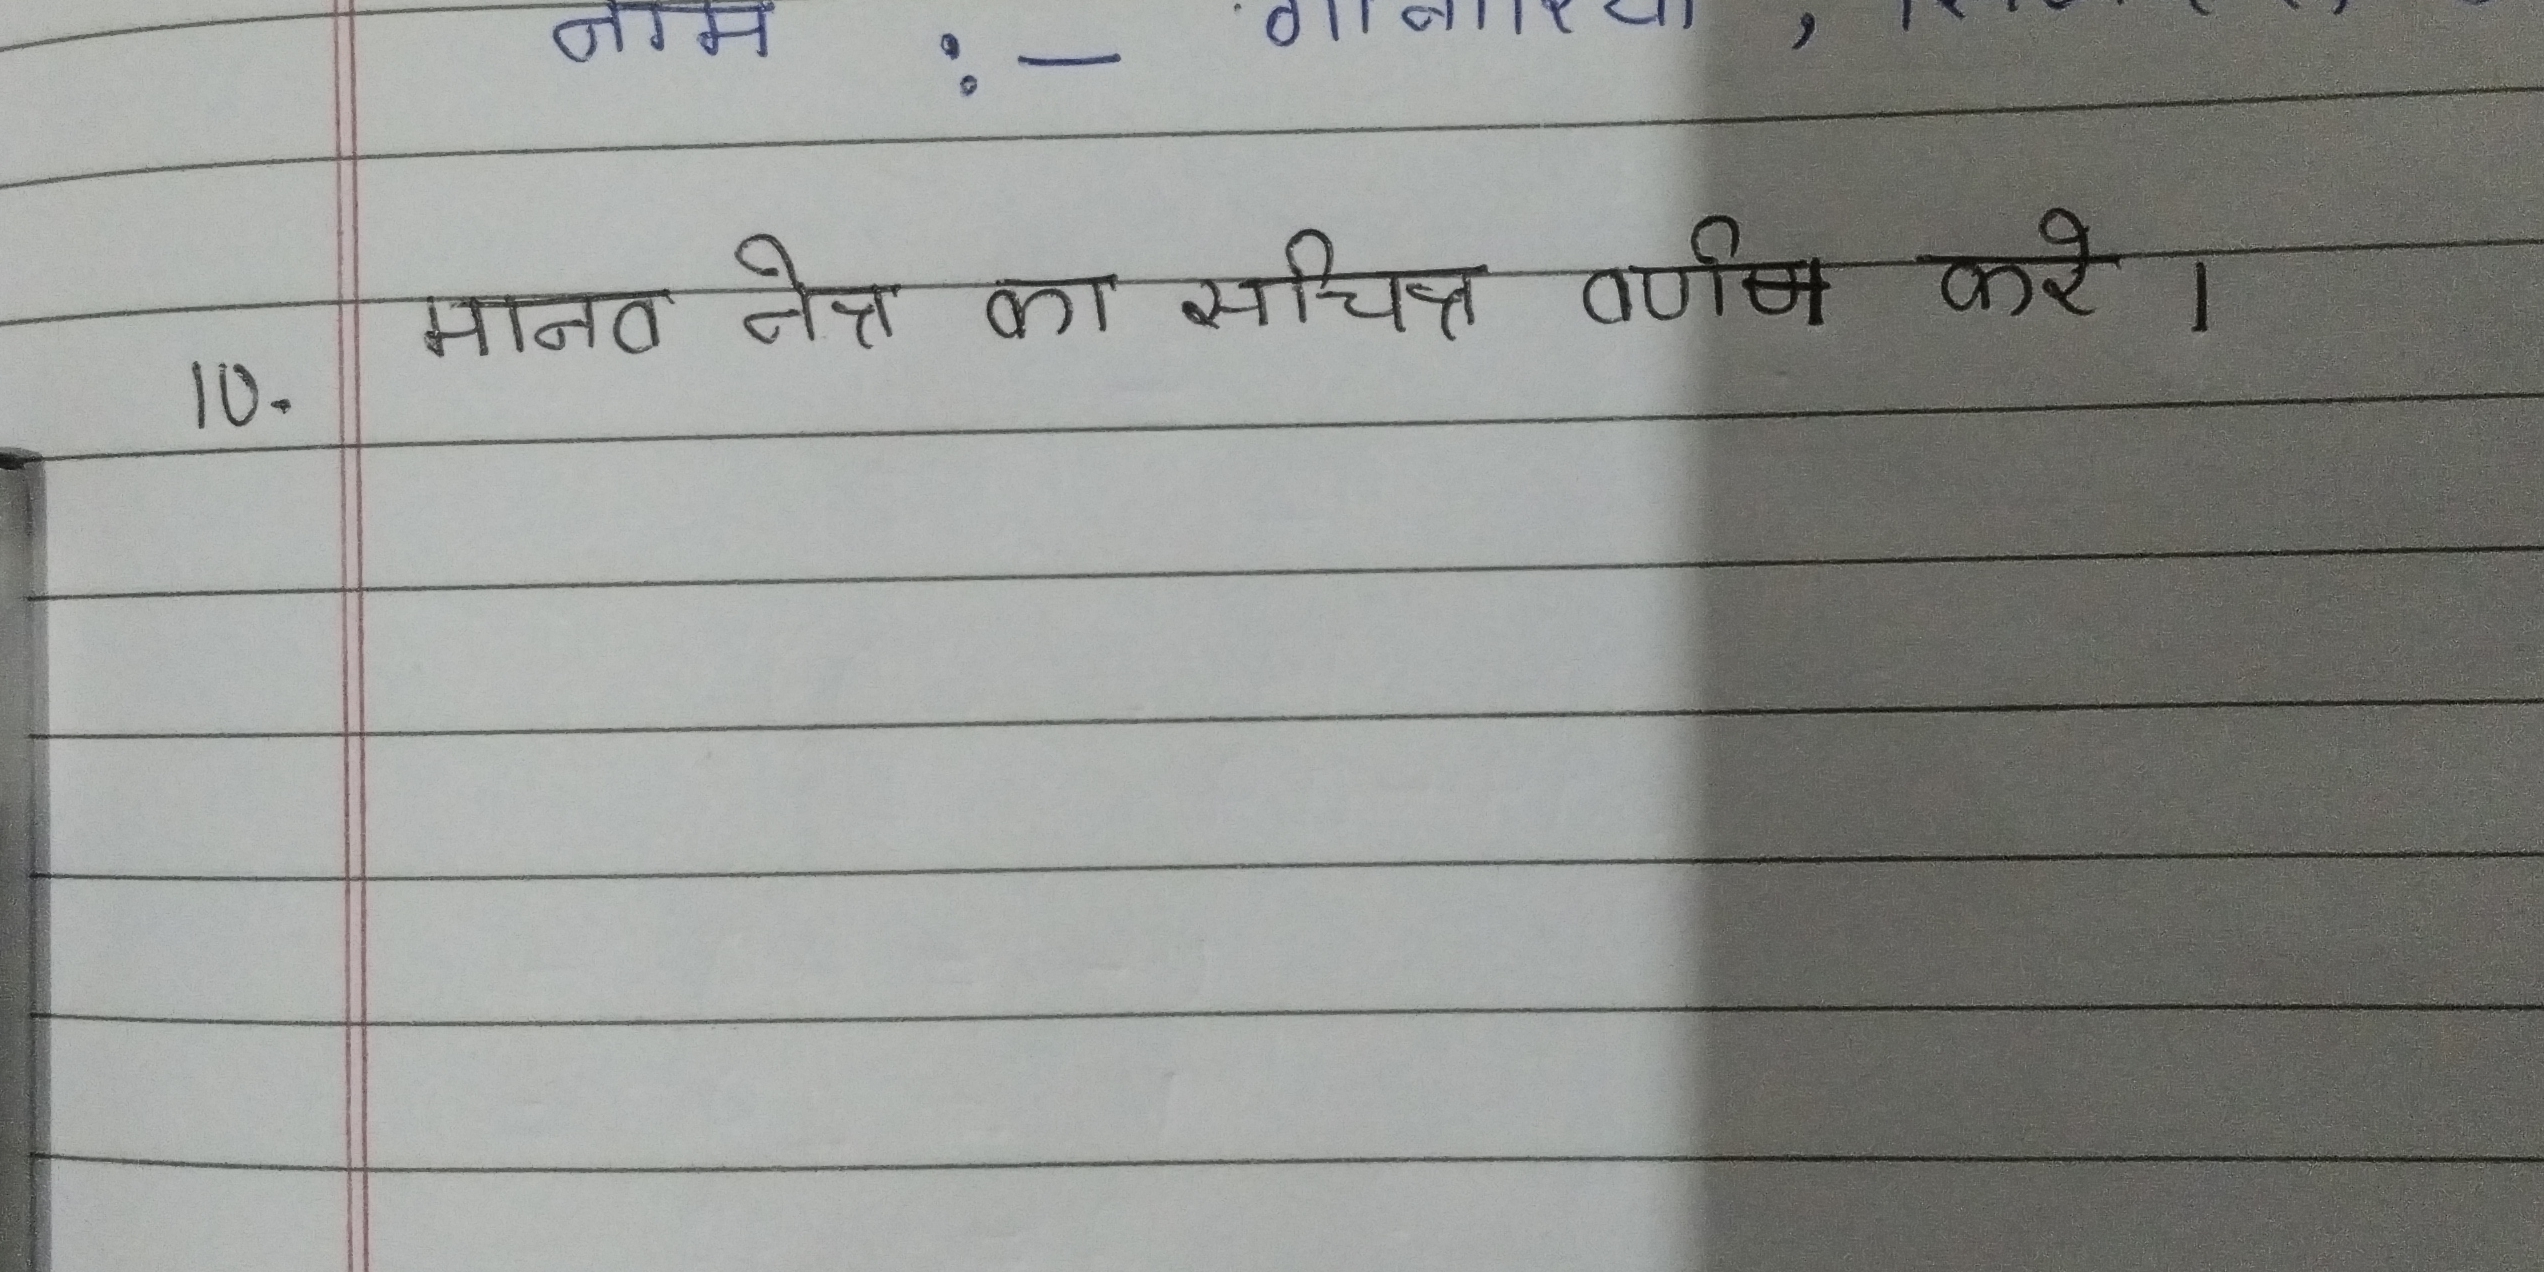 नाम :-
मानव नेत्र का सचित्र वर्णन करे ।
10.